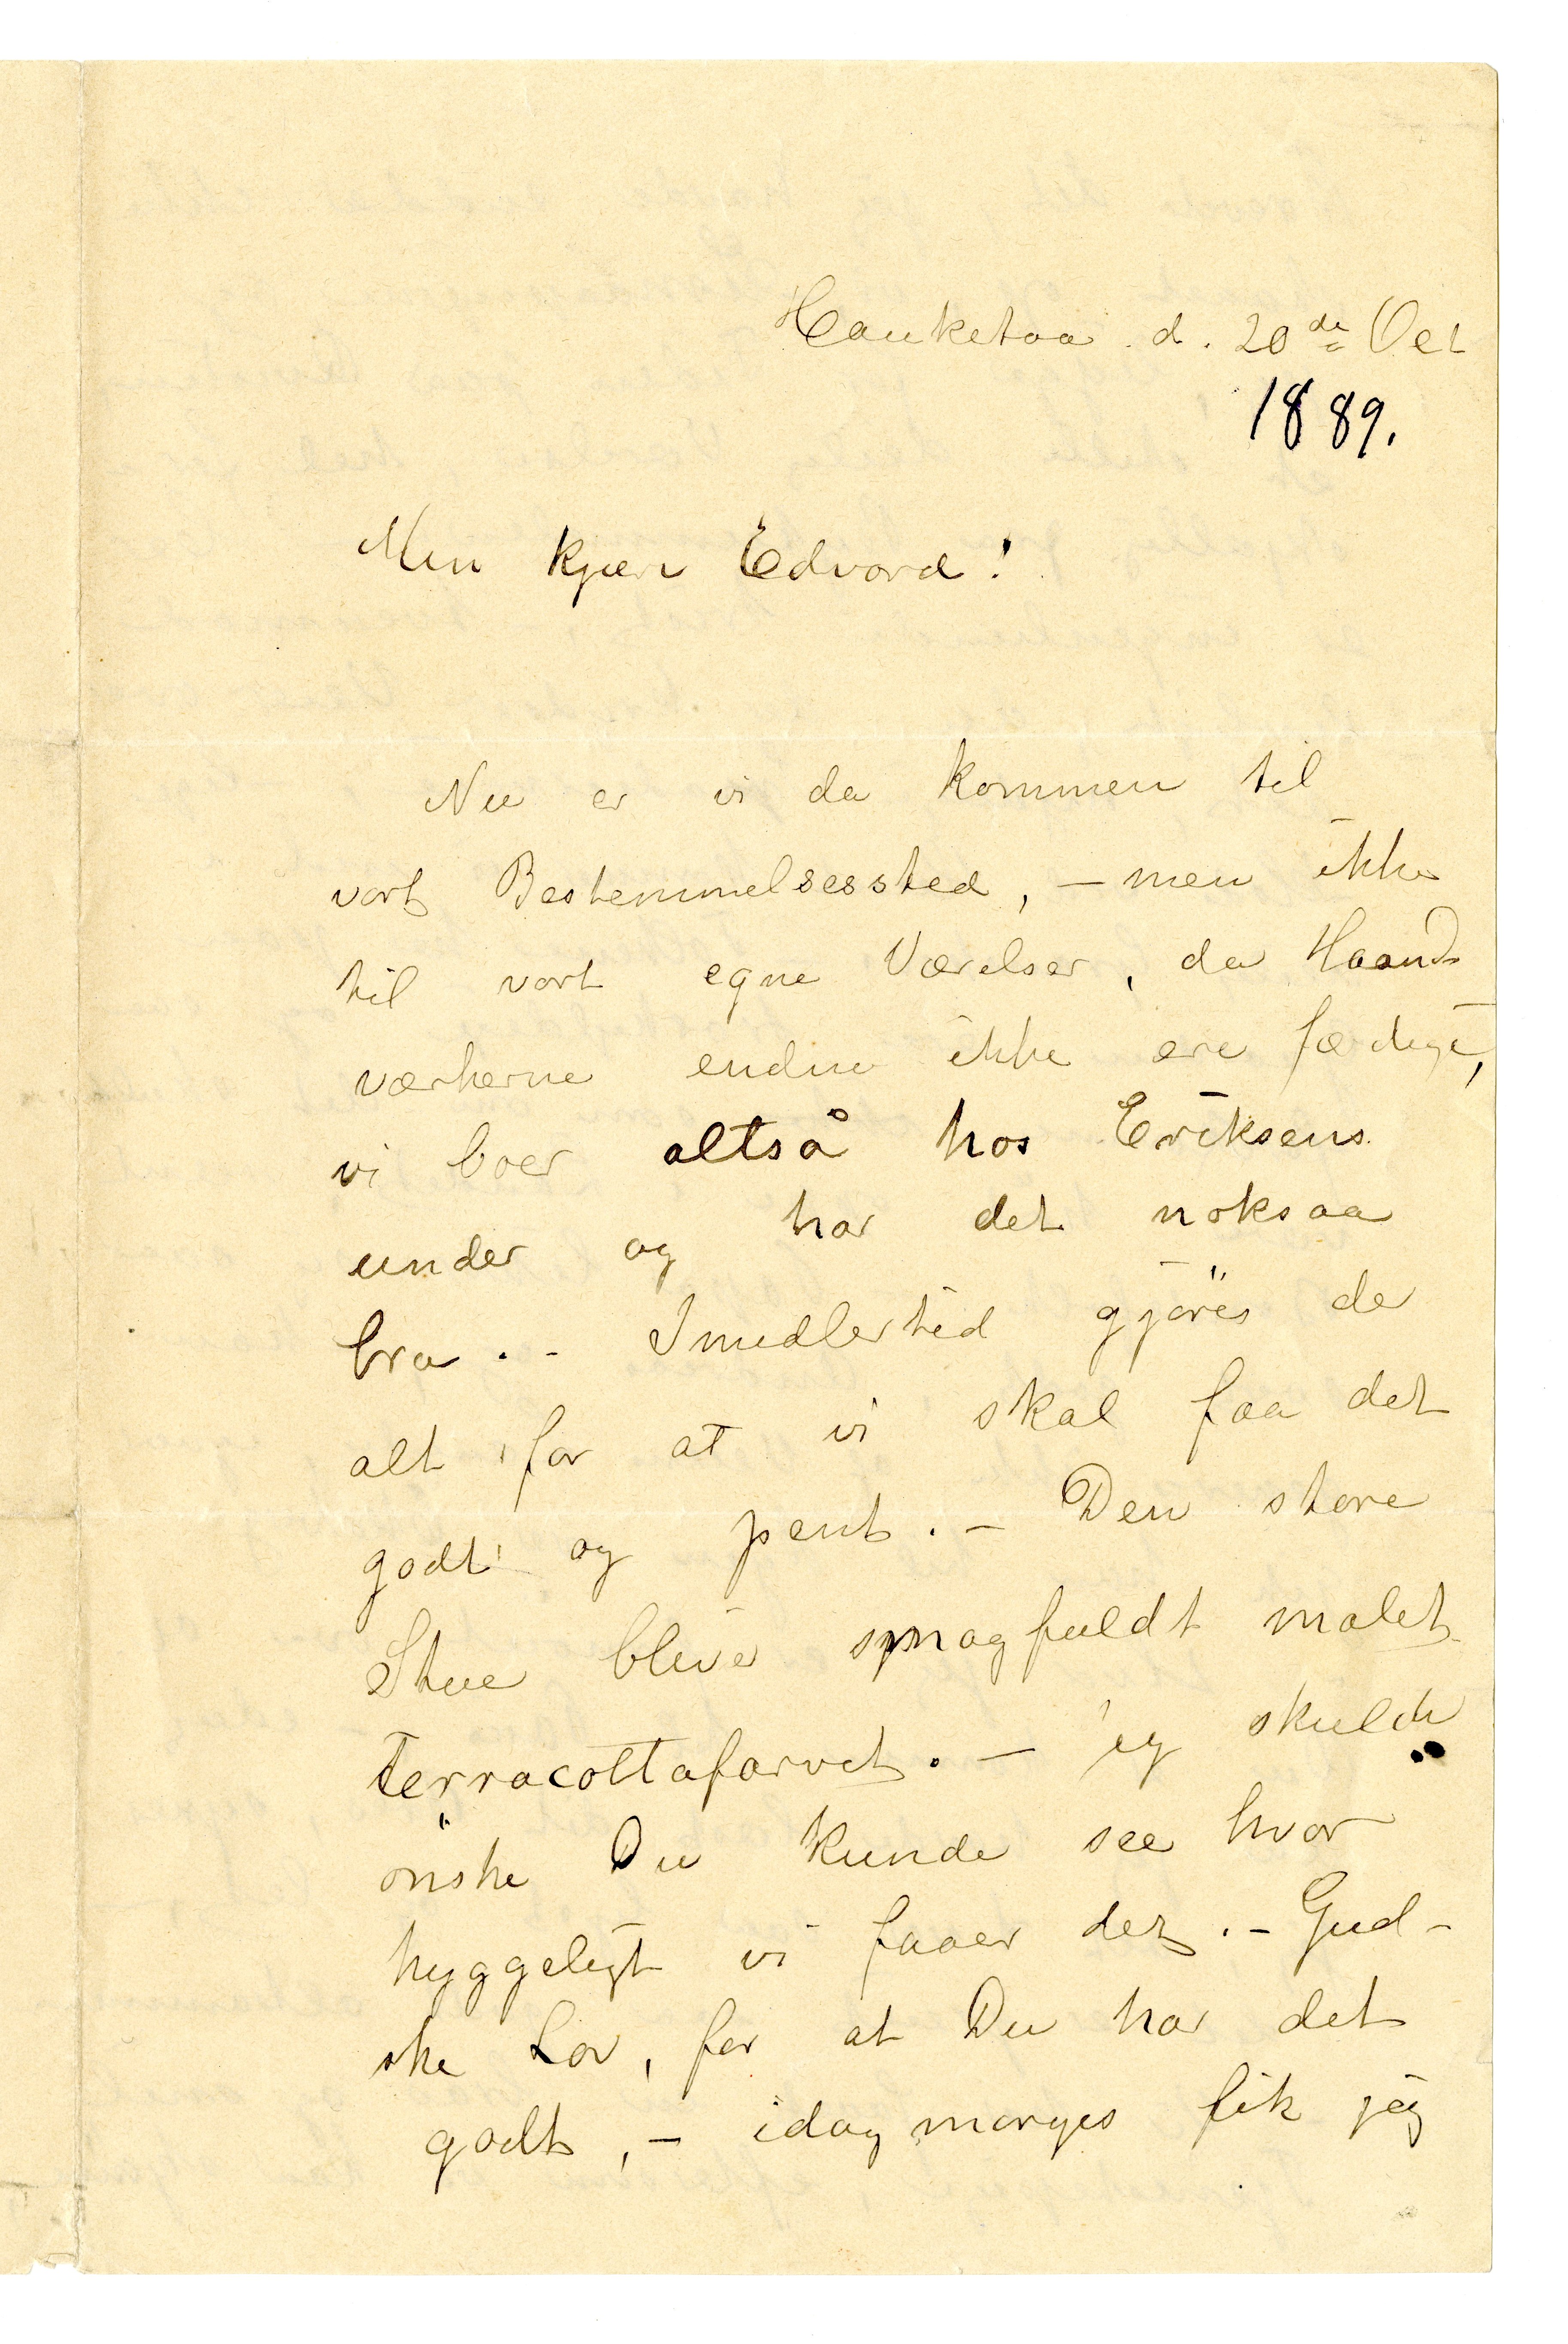 Hauketoa d. 20de Oct
1889.
Min kjære Edvard!
Nu er vi da kommen til
vort Bestemmelsessted, – men ikke
til vort egne Værelser, da Haand
værkerne endnu ikke ere færdige,
vi boer altså hos Eriksens
under og har det noksaa
bra. – Imidlertid gjöres der
alt for at vi skal faa det
godt og pent. – Den store
Stue bliver smagfuldt malet
Terracottafarvet. – jeg skulde
önske Du kunde see hvor
hyggeligt vi faaer det. – Gud-
ske Lov, for at Du har det
godt, – idag morges fik jeg